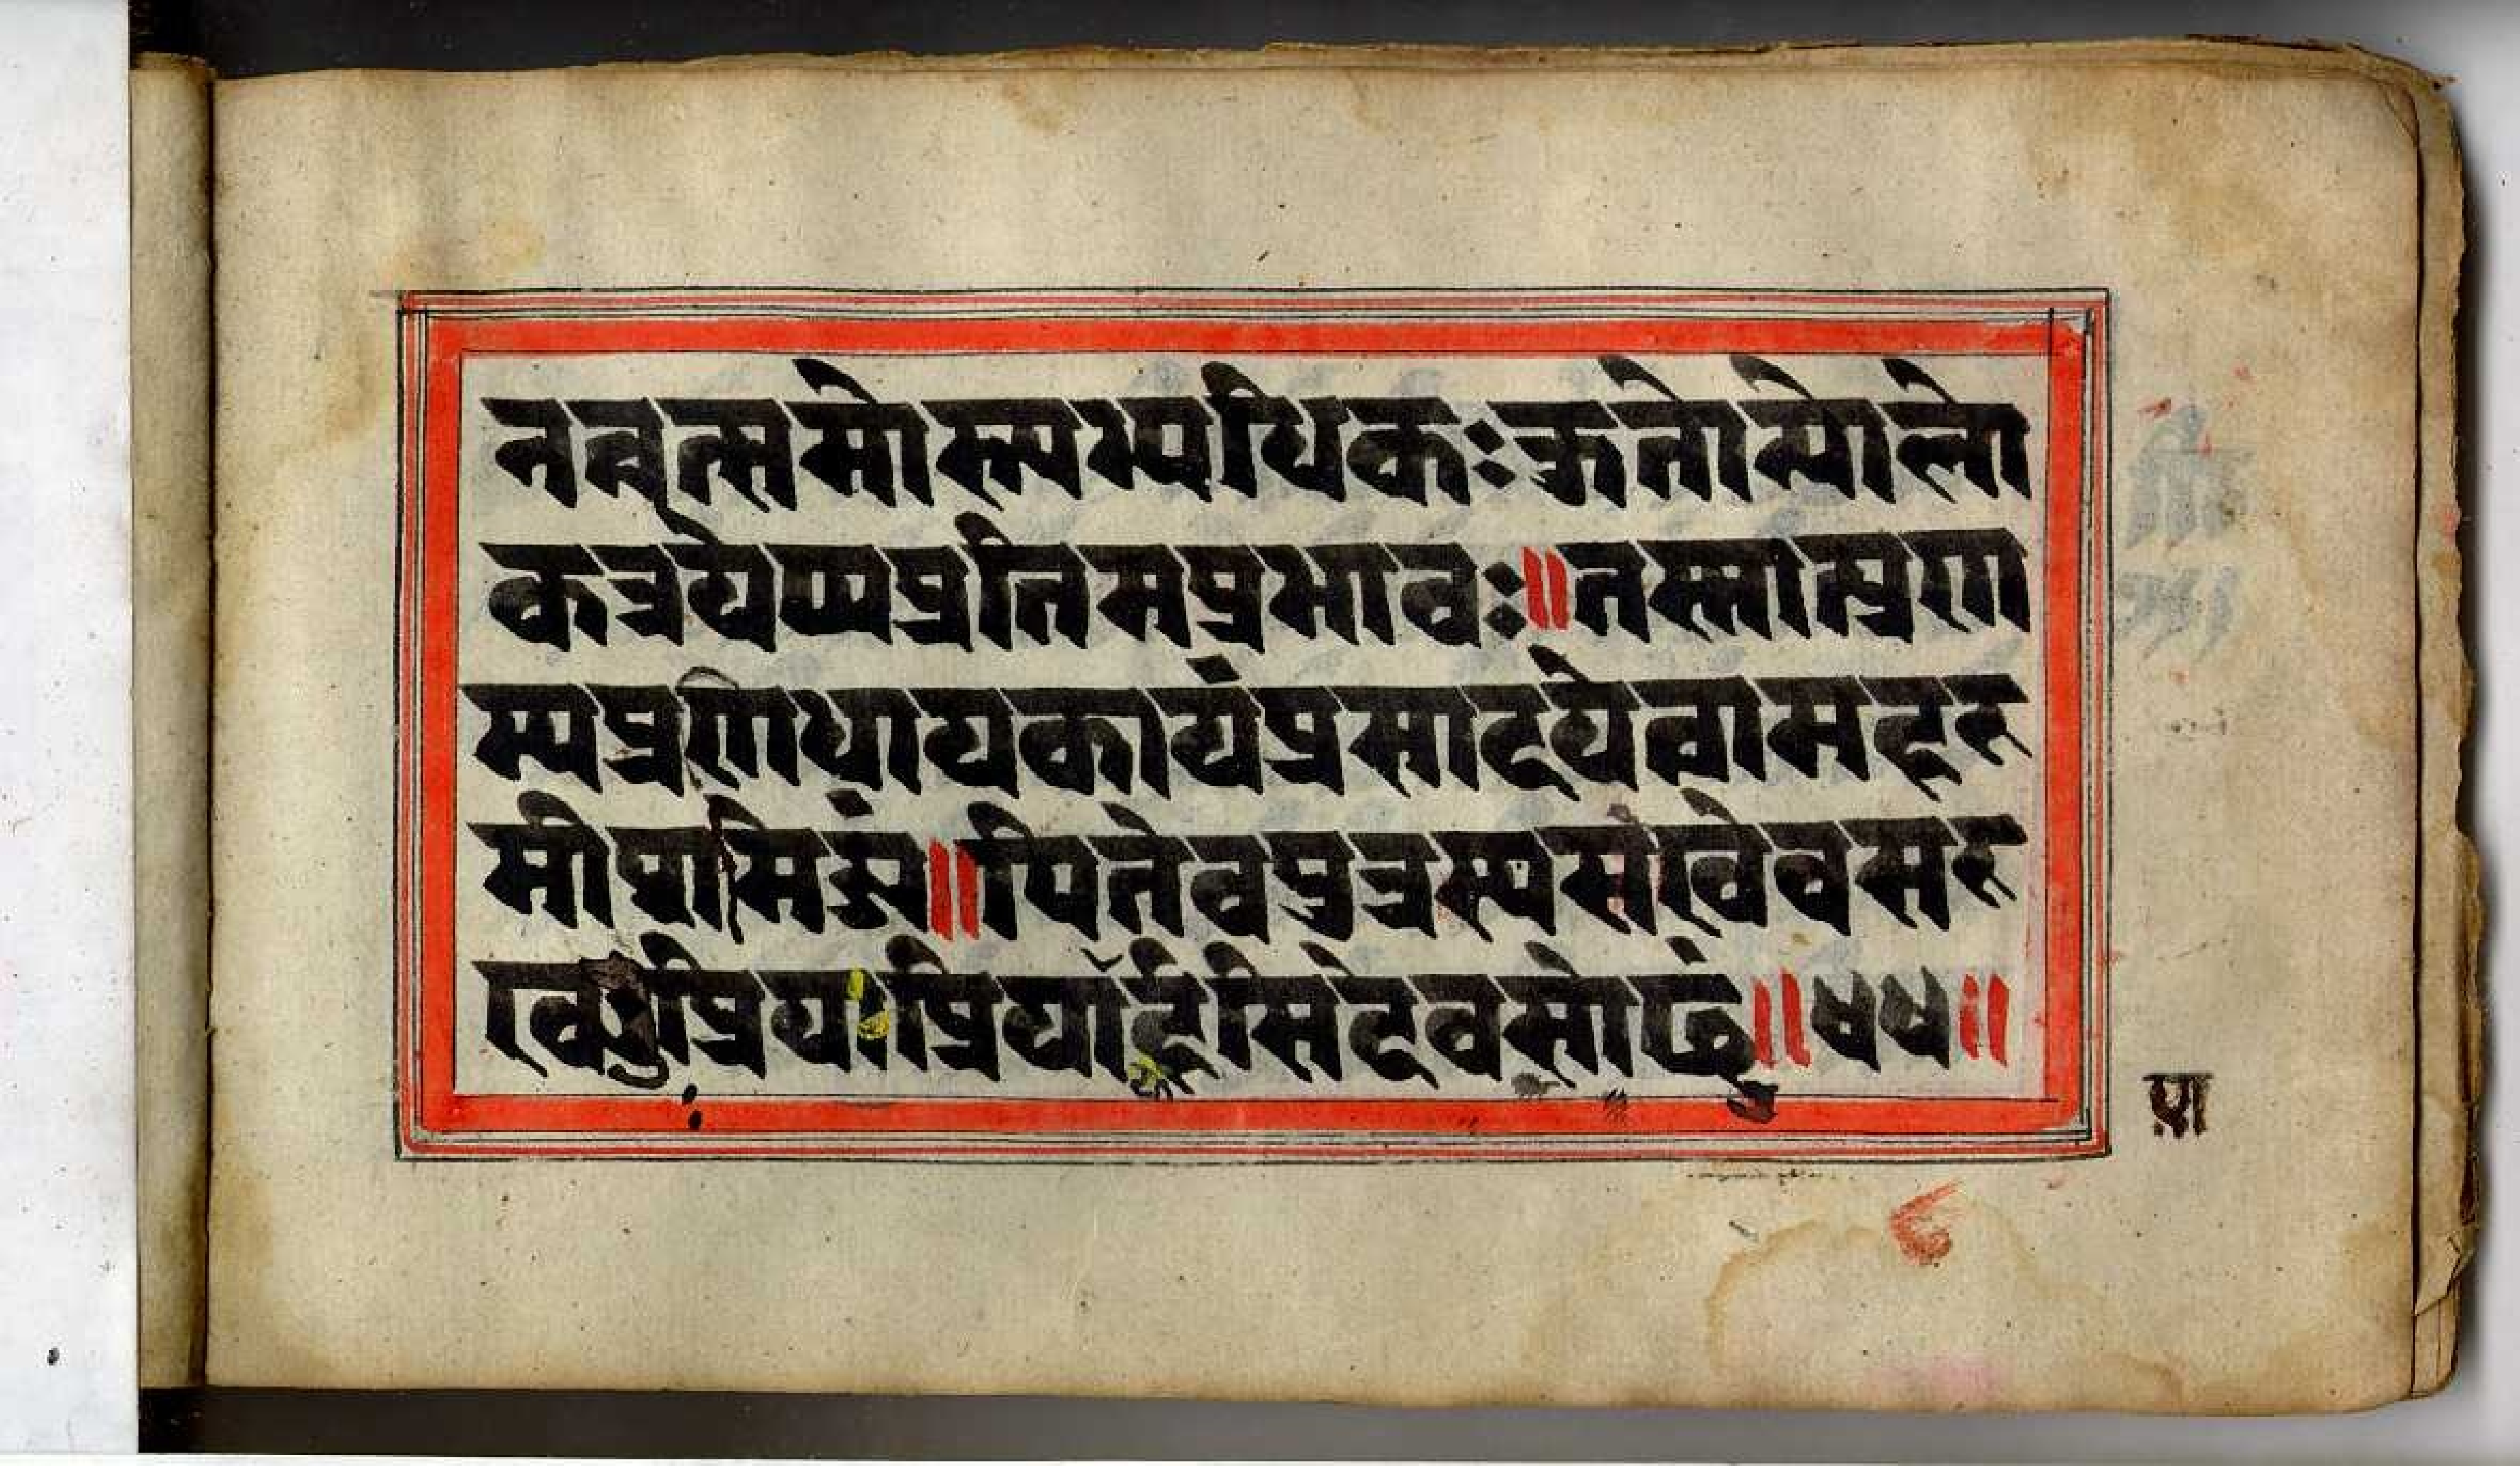 नत्वत्समोस्त्यभ्यधिकःकुतोन्योलो
कत्रयेप्यप्रतिमप्रभावः॥तस्मात्प्रणा
म्यप्रणिधायकायंप्रसादयेत्वामहह
मीशमिड्यं॥पितेवपुत्रस्यसखेवसह
ख्युःप्रियःप्रियार्हसिदेवसोढुं॥४४॥